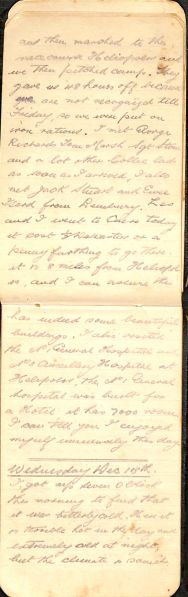 and then marched to the
racecourse Heliopolis and
we then pitched camp. They
gave us 48 hours off because
we are not recognized till
Friday, so we were put on
iron rations. I met George
Richards Tom Marsh Sgt
and a lot other Collie lads
as soon as I arrived, I also
met Jack Stuart and
from Bunbury. Les
and I went to Cairo today
it cost
penny farthing to go there
it is 8 miles from Heliopol
is, and I can assure the
has indeed some beautiful
buildings. I also visited
the No 1 General Hospital and
No 1 Auxillary Hospital at
Heliopolis. The No 1 General
hospital was built for
a Hotel it has 7000 rooms
I can tell you I enjoyed
myself immensely this day.
Wednesday Dec 15th.
I got up seven O'Clock
this morning to find that
it was bitterly cold, then it
is terrible hot in the day and
extremely cold at night,
but the climate is